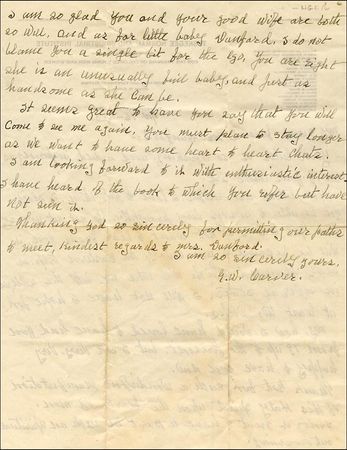 I am so glad you and your good wife are both
so well, and as for little baby I do not
blame you a single bit for the ego, you are right
she is an unusually fine baby, and just as
handsome as she can be.
It seems great to have you say that you will
come to see me again, you must plan to stay longer
as we want to have some heart to heart chats.
I am looking forward to it with enthusiastic interest,
I have heard of the book to which you refer but have
not seen it.
Thanking God so sincerely for permitting our paths
to meet, kindest regards to Mrs.
I am so sincerely yours,
G.W. Carver.